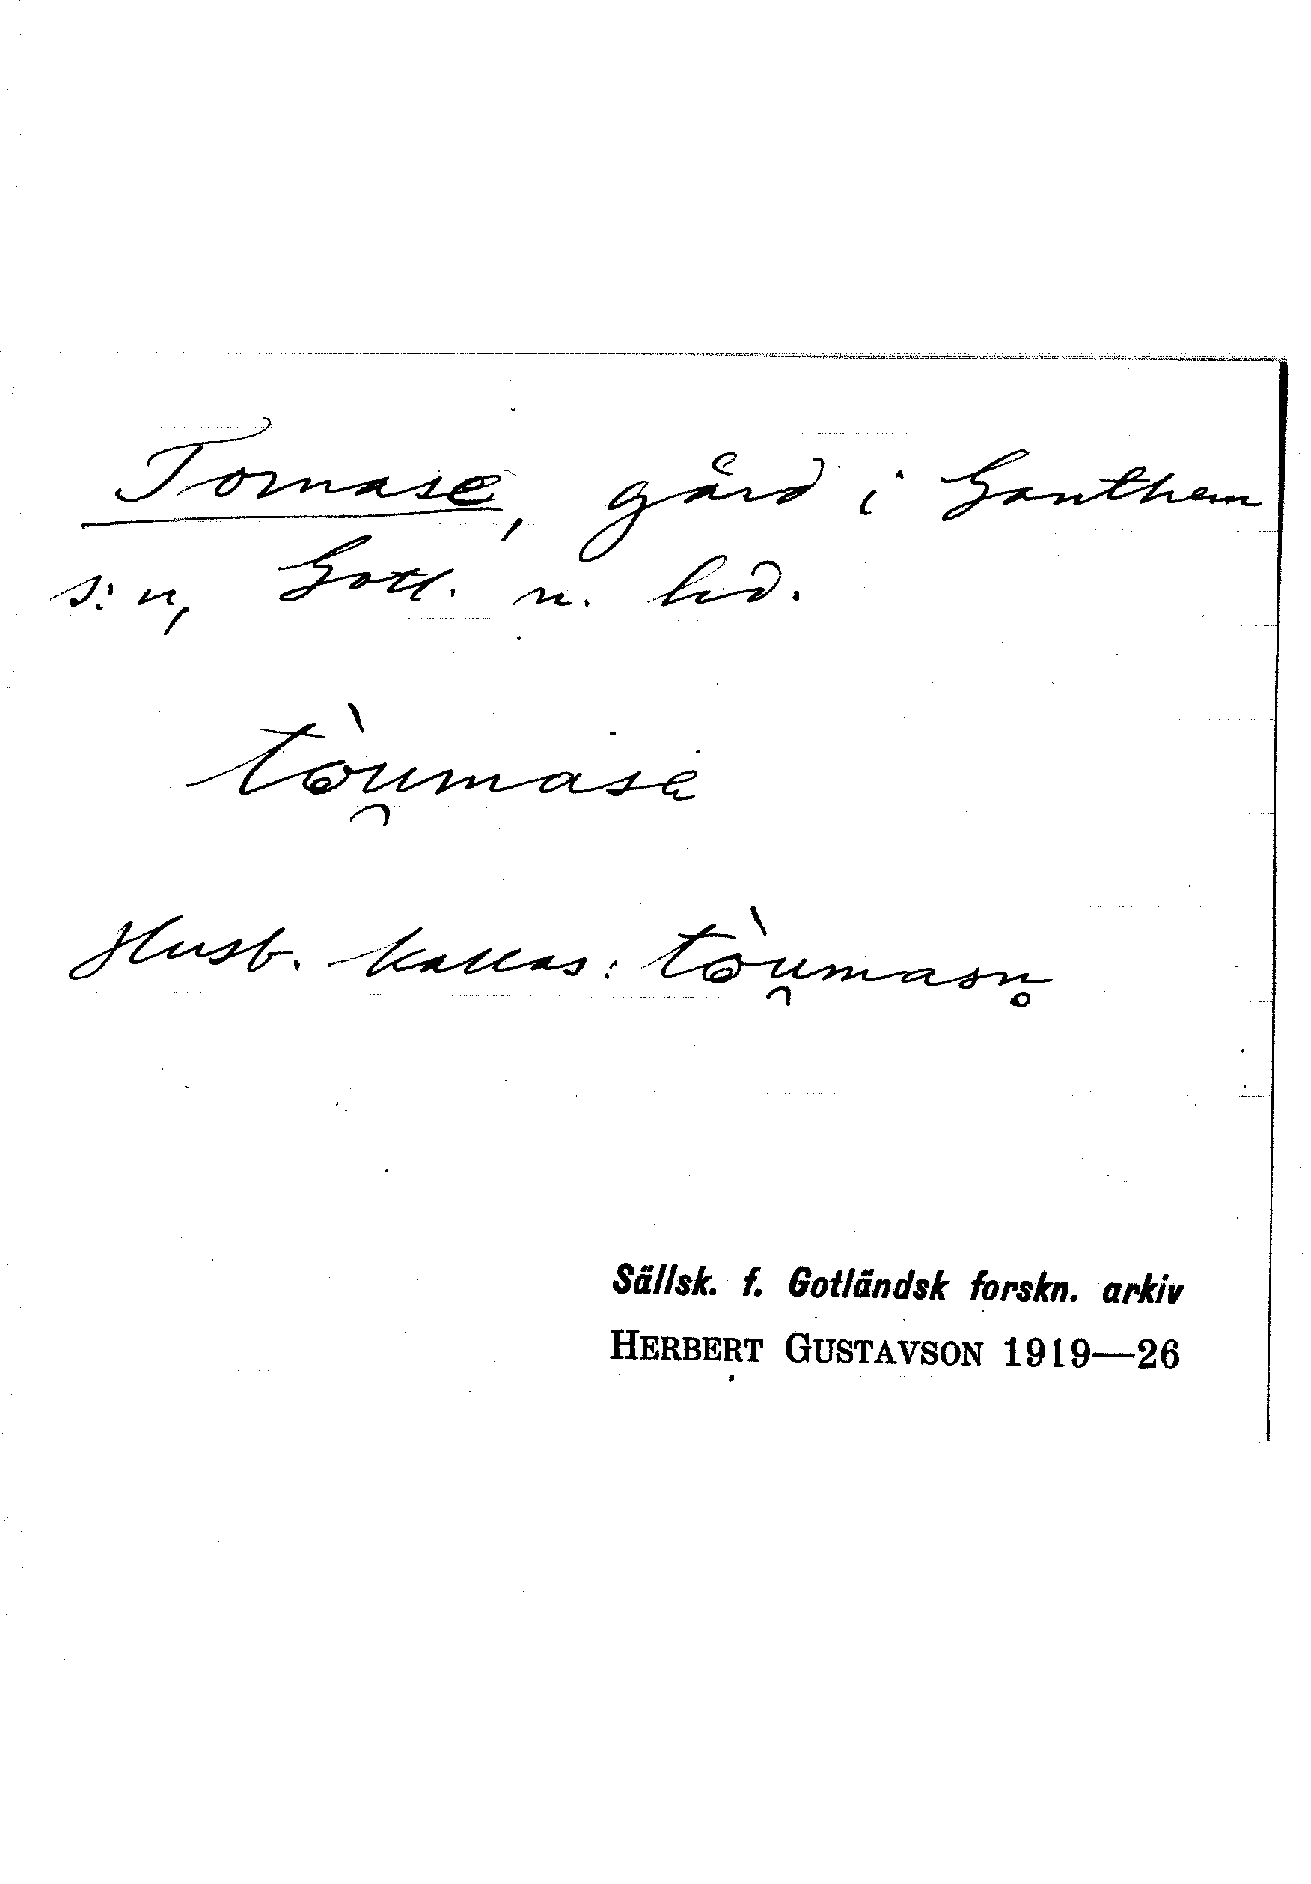 Tomase, gård i Ganthem
s:n, Gotl. n. hd.
tòu̯mase
Husb. kallas: tòu̯masn̥
Sällsk. f. Gotländsk forskn. arkiv
HERBERT GUSTAVSON 1919—26